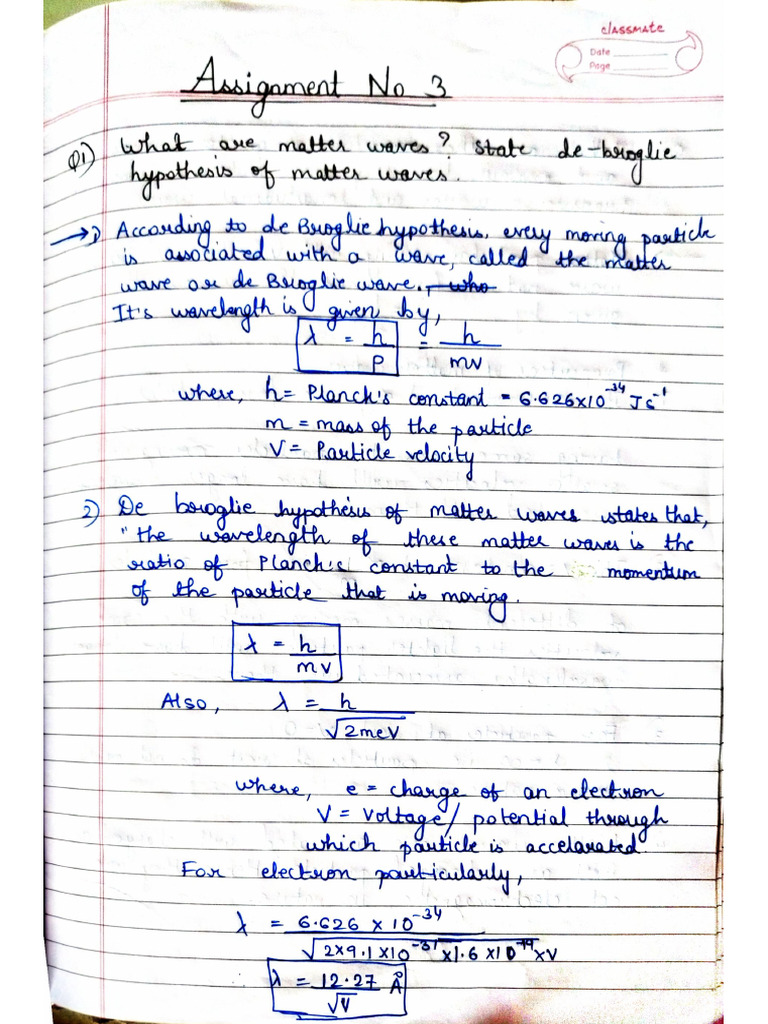 classmate
Date
Page
Assignment No 3
Q1) What are matter waves? State de-broglie
hypothesis of matter waves.
→ 1) According to de Broglie hypothesis, every moving particle
is associated with a wave, called the matter
wave or de Broglie wave., who
It's wavelength is given by,
λ = h/p = h/mv
where, h = Planck's constant = 6.626×10⁻³⁴ Js⁻¹
m = mass of the particle
V = Particle velocity
2) De broglie hypothesis of matter waves states that,
"the wavelength of these matter waves is the
ratio of Planck's constant to the momentum
of the particle that is moving.
λ = h/mv
Also, λ = h/√2meV
where, e = charge of an electron
V = Voltage/potential through
which particle is accelarated.
For electron particularly,
λ = 6.626 × 10⁻³⁴/√2×9.1×10⁻³¹×1.6×10⁻¹⁹×V
λ = 12.27/√V Å